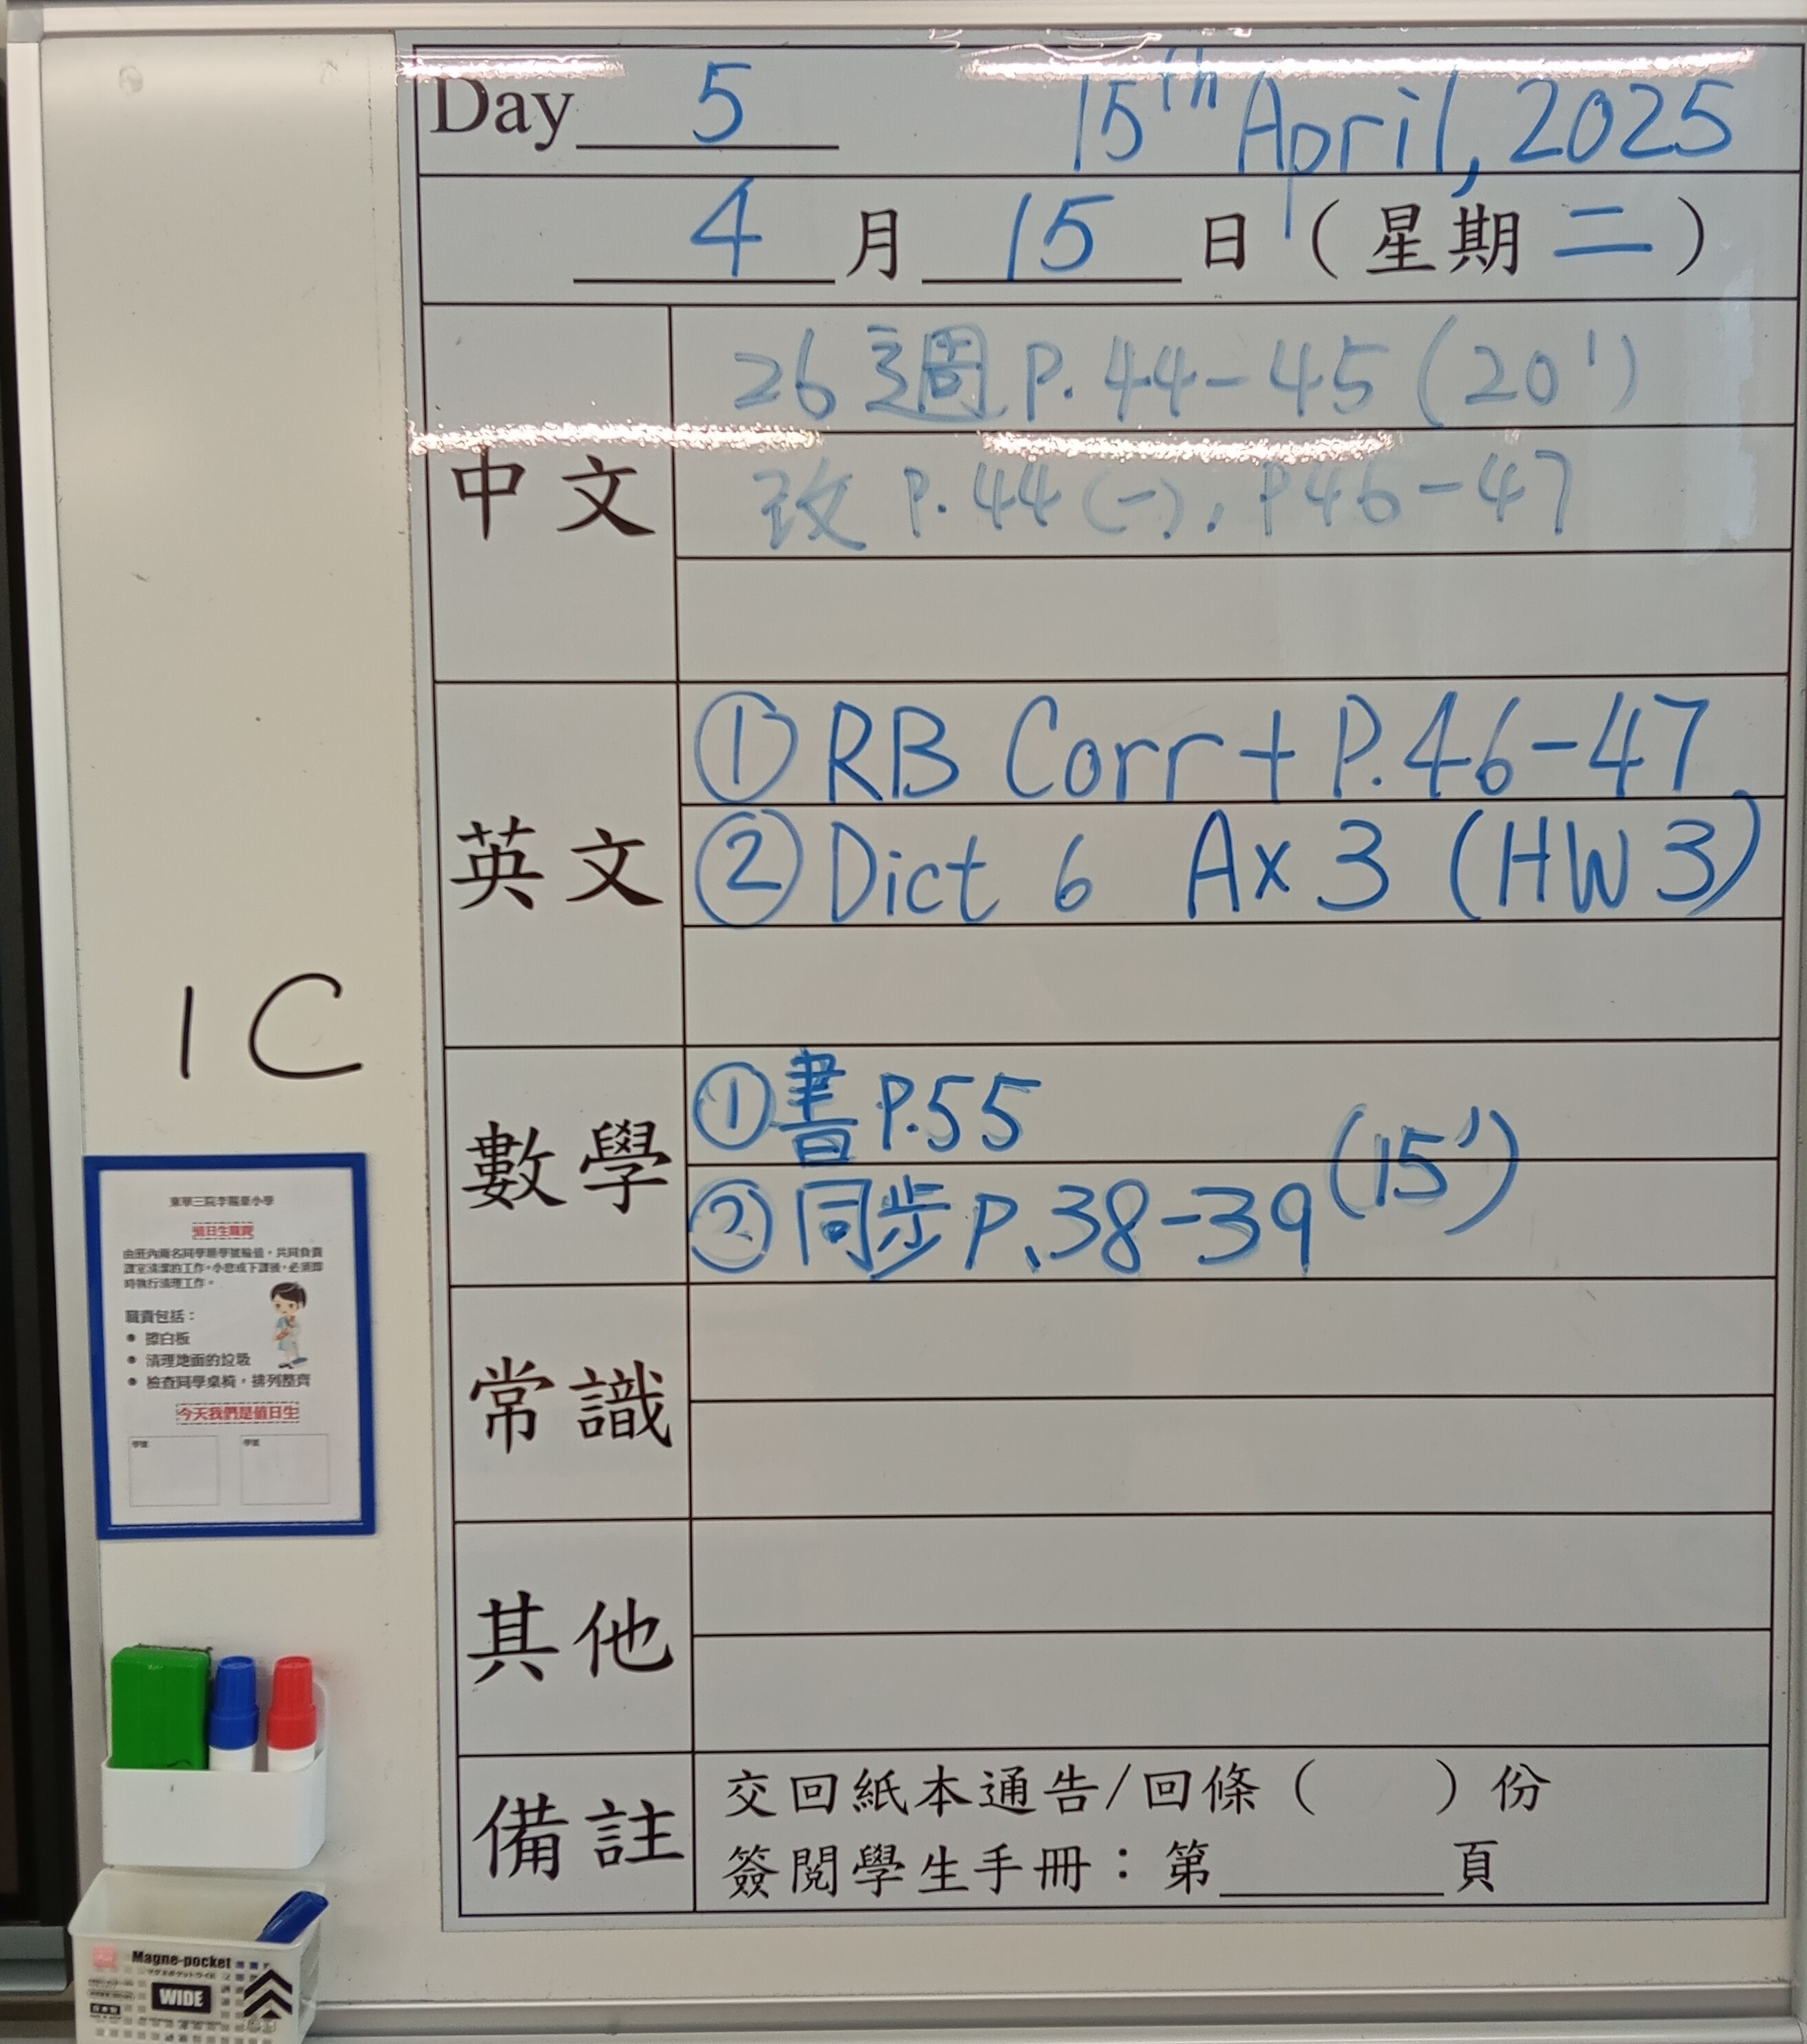 Day 5 15th April, 2025
4 月 15 日 (星期二)
中文
26週 P.44-45 (20')
改 P.44 (一), P46-47
英文
① RB Corr + P.46-47
② Dict 6 A x 3 (HW 3)
數學
① 書 P.55
② 同步 P.38-39 (15')
常識
其他
備註
交回紙本通告/回條( )份
簽閱學生手冊：第______頁
1C
東華三院李賜豪小學
值日生職責
由班內兩名同學順學號輪值，共同負責
課室清潔的工作。小息或下課後，必須即
時執行清理工作。
職責包括：
● 擦白板
● 清理地面的垃圾
● 檢查同學桌椅，排列整齊
今天我們是值日生
學號 學號
Magne-pocket
WIDE